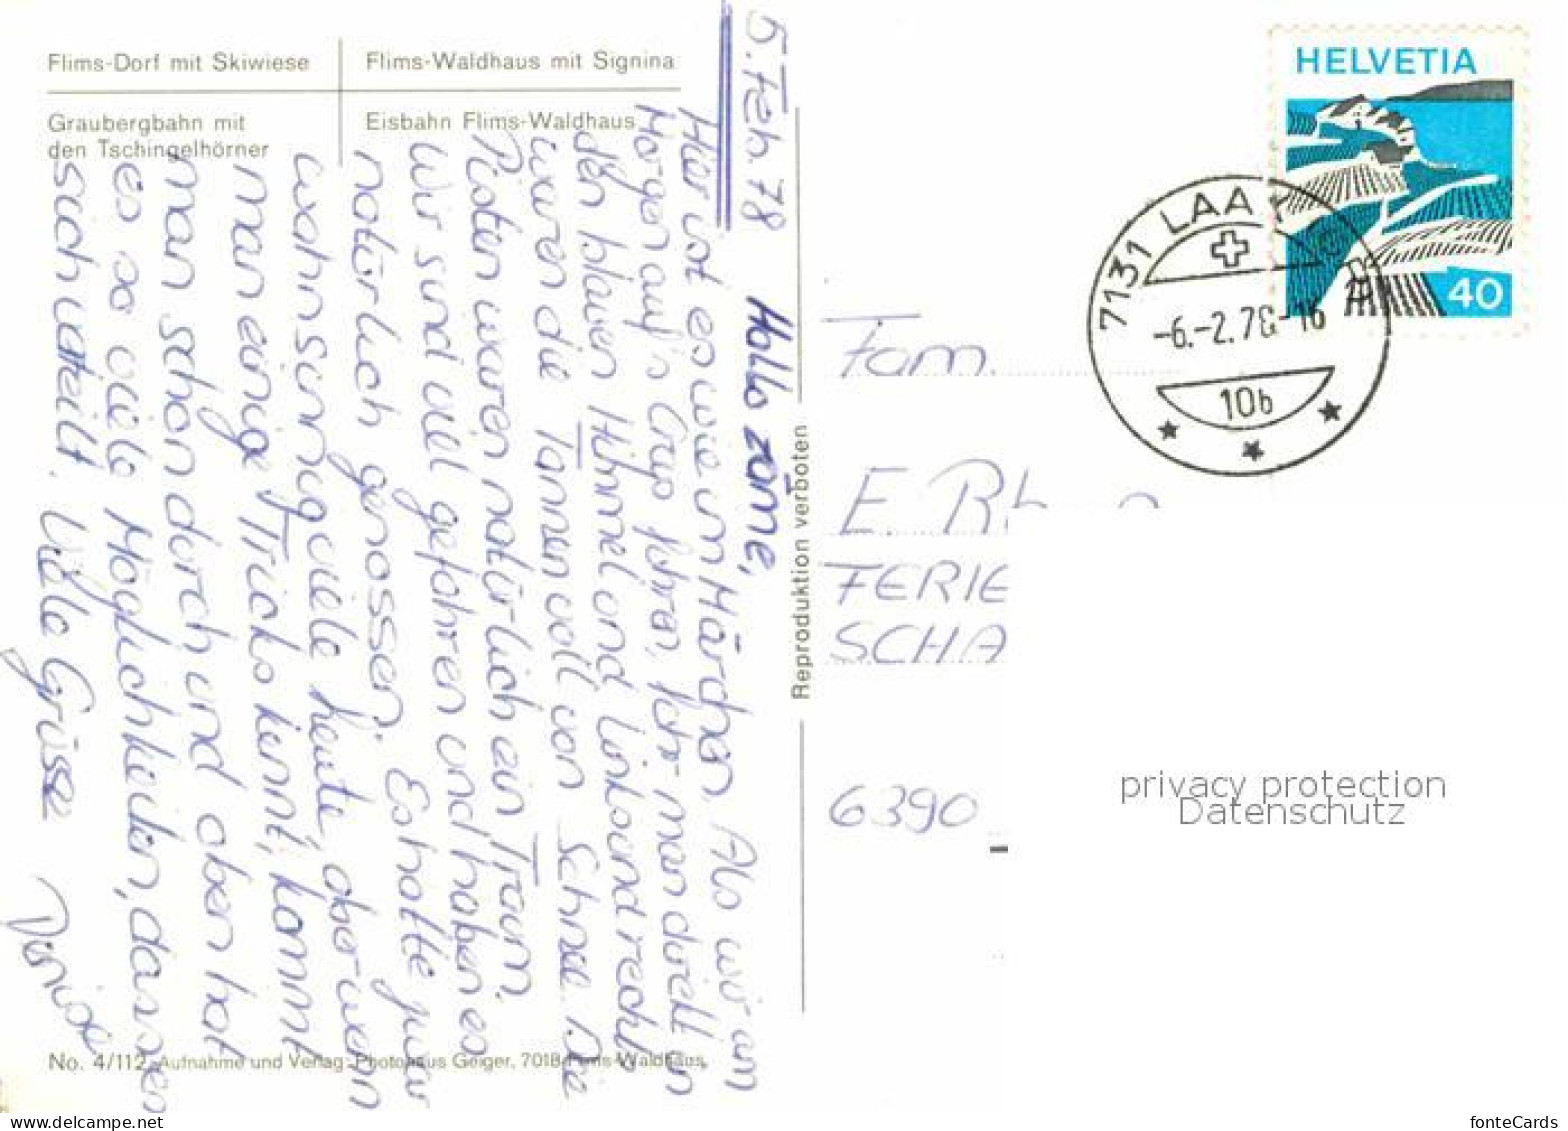 Flims-Dorf mit Skiwiese
Flims-Waldhaus mit Signina
Graubergbahn mit
den Tschingelhörner
Eisbahn Flims-Waldhaus
5. Feb. 78
Hallo zäme,
Hier ist es wie im Märchen. Als wir am
Morgen auf's Crap fuhren, fuhr man direkt in
den blauen Himmel und links und rechts
waren die Tannen voll von Schnee. Die
Pisten waren natürlich ein Traum.
Wir sind viel gefahren und haben es
natürlich genossen. Es hatte zwar
wahnsinnig viele Leute, aber wenn
man einige Tricks kennt, kommt
man schon durch und oben hat
es so viele Möglichkeiten, dass es
sich verteilt. Viele Grüsse
No. 4/112 Aufnahme und Verlag: Photohaus Geiger, 7018 Flims-Waldhaus
Reproduktion verboten
HELVETIA
40
7131 LAAX
-6.-2.78-16
10b
Fam.
E.
FERIE
SCHA
6390
privacy protection
Datenschutz
www.delcampe.net
fonteCards